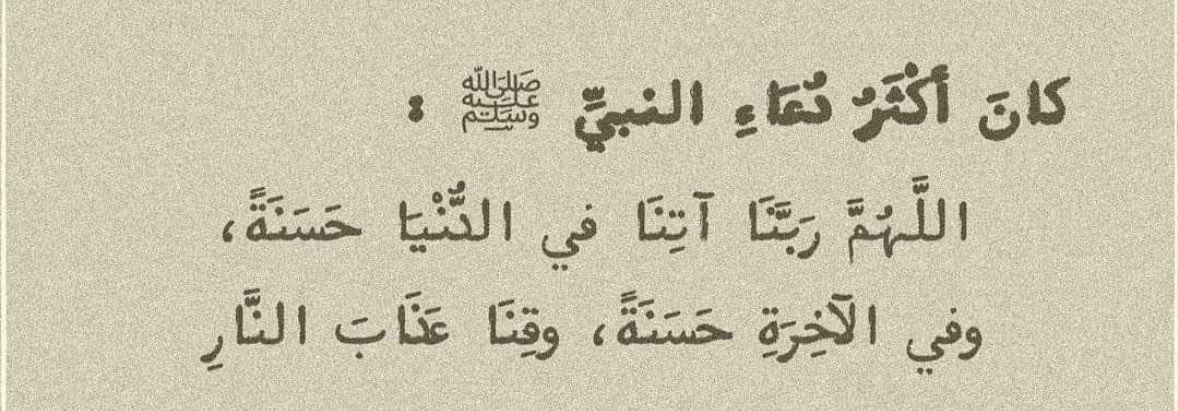 كانَ أَكْثَرُ دُعَاءِ النبيِّ ﷺ :
اللَّهُمَّ رَبَّنَا آتِنَا في الدُّنْيَا حَسَنَةً،
وفي الآخِرَةِ حَسَنَةً، وقِنَا عَذَابَ النَّارِ